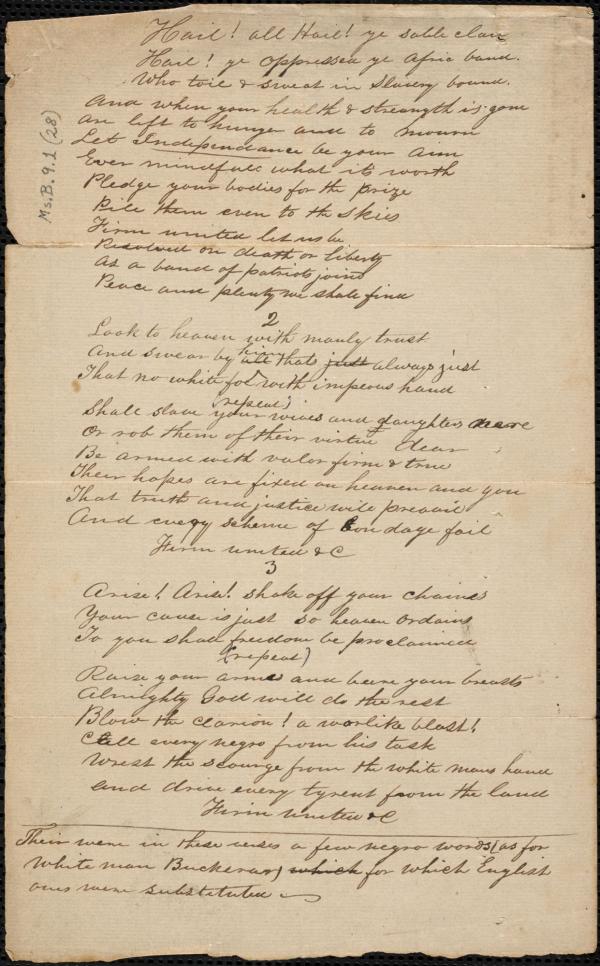 Hail! all Hail! ye sable clan
Hail! ye oppressed ye Afric band.
Who toil & sweat in slavery bound.
And when your health & strength is gone
are left to hunger and to mourn
Let Independance be your aim
Ever mindfull what it's worth
Pledge your bodies for the prize
Pile them even to the skies
Firm united let us be
Resolved on death or liberty
As a band of patriots joind
Peace and plenty we shall find
Ms. B. 9.1 (28)
2
Look to heaven with manly trust
And swear by him all thats just always just
That no white foe with impeous hand
(repeat)
Shall slave your wives and daughters more
Or rob them of their virtue dear
Be armed with valor firm & true
Their hopes are fixed on heaven and you
That truth and justice will prevail
And every scheme of bondage fail
Firm united &C
3
Arise! Arise! shake off your chains
Your cause is just so heaven ordains
To you shall freedom be proclaimed
(repeat)
Raise your arms and bare your breasts
Almighty God will do the rest
Blow the clarion! a warlike blast!
Call every negro from his task
Wrest the scourge from the white mans hand
and drive every tyrent from the land
Firm united &C
Their were in these verses a few negro words (as for
white man Buckera) which for which English
ones were substituted